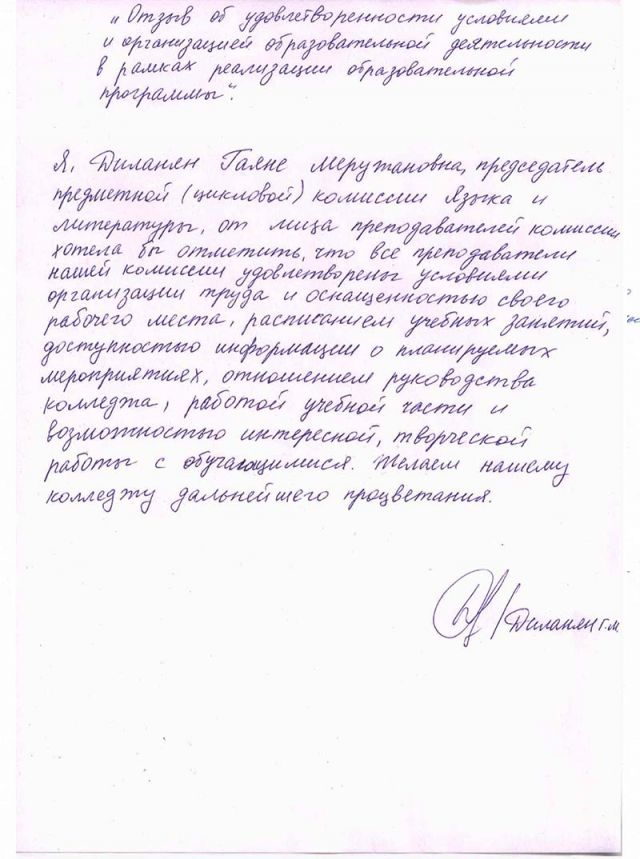 „Отзыв об удовлетворенности условиями
и организацией образовательной деятельности
в рамках реализации образовательной
программы".
Я, Диланян Гаяне Меружановна, председатель
предметной (цикловой) комиссии Языка и
литературы, от лица преподавателей комиссии
хотела бы отметить, что все преподаватели
нашей комиссии удовлетворены условиями
организации труда и оснащенностью своего
рабочего места, расписанием учебных занятий,
доступностью информации о планируемых
мероприятиях, отношением руководства
колледжа, работой учебной части и
возможностью интересной, творческой
работы с обучающимися. Желаем нашему
колледжу дальнейшего процветания.
/Диланян Г.М